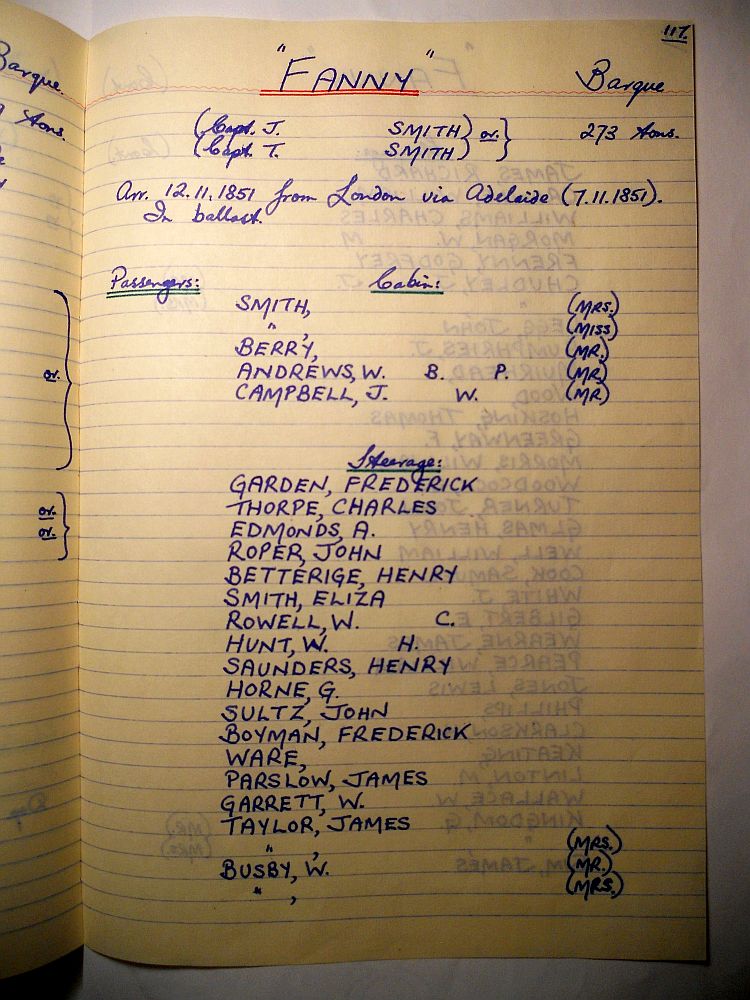 117.
"FANNY" Barque
(Capt. J. SMITH) or. } 273 tons.
(Capt. T. SMITH)
Arr. 12.11.1851 from London via Adelaide (7.11.1851).
In ballast.
Passengers: Cabin:
SMITH, (MRS.)
" , (MISS)
BERRY, (MR.)
ANDREWS, W. B. P. (MR)
CAMPBELL, J. W. (MR)
Steerage:
GARDEN, FREDERICK
THORPE, CHARLES
EDMONDS, A.
ROPER, JOHN
BETTERIGE, HENRY
SMITH, ELIZA
ROWELL, W. C.
HUNT, W. H.
SAUNDERS, HENRY
HORNE, G.
SULTZ, JOHN
BOYMAN, FREDERICK
WARE,
PARSLOW, JAMES
GARRETT, W.
TAYLOR, JAMES
" , (MRS.)
BUSBY, W. (MR.)
" , (MRS.)
Barque
tons.
or.
or.
or.